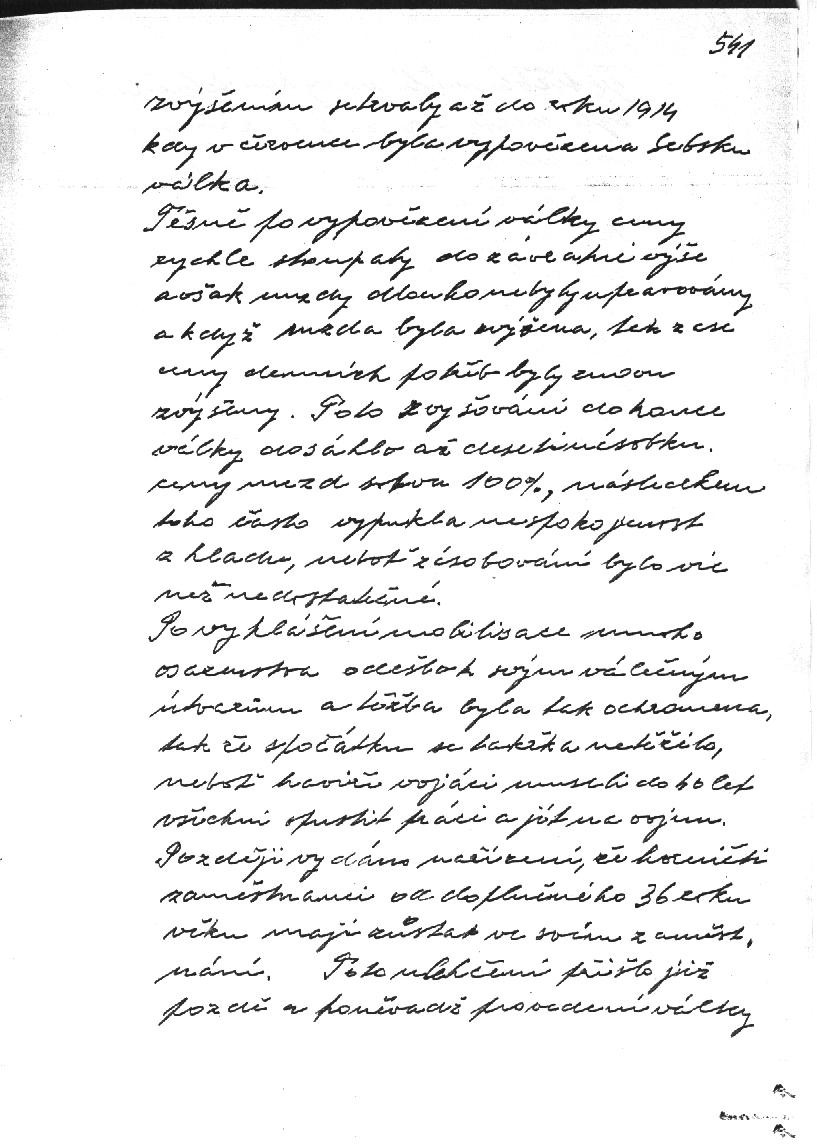 541
zvýšením setrvaly až do roku 1914
kdy v červenci byla vypovězena Srbsku
válka.
Těsně po vypovězení války ceny
rychle stoupaly do závratné výše
avšak mzdy dlouho nebyly upravovány
a když mzda byla zvýšena, tak zase
ceny denních potřeb byly znovu
zvýšeny. Toto zvyšování do konce
války dosáhlo až desetinásobku.
ceny mezd sotva 100%, následkem
toho často vypukla nespokojenost
z hladu, neboť zásobování bylo víc
než nedostatečné.
Po vyhlášení mobilisace mnoho
osazenstva odešlo k svým válečným
útvarům a těžba byla tak ochromena,
tak že zpočátku se takřka netěžilo,
neboť havíři vojáci museli do 40 let
všichni opustit práci a jít na vojnu.
Později vydáno nařízení, že horničtí
zaměstnanci od doplněného 36 roku
věku mají zůstat ve svém zaměst,
nání. Toto ulehčení přišlo již
pozdě a poněvadž provedení války